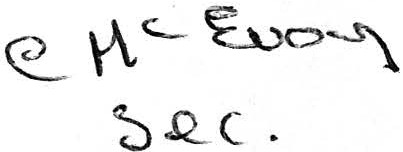 C McEvoy
Sec.